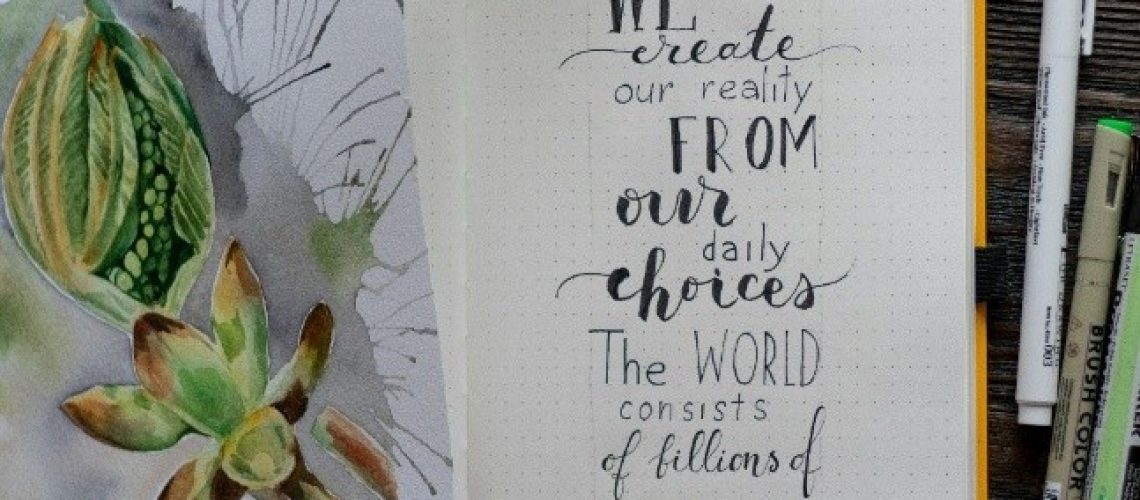 WE
create
our reality
FROM
our
daily
choices
The WORLD
consists
of billions of
BRUSH COLOR
003